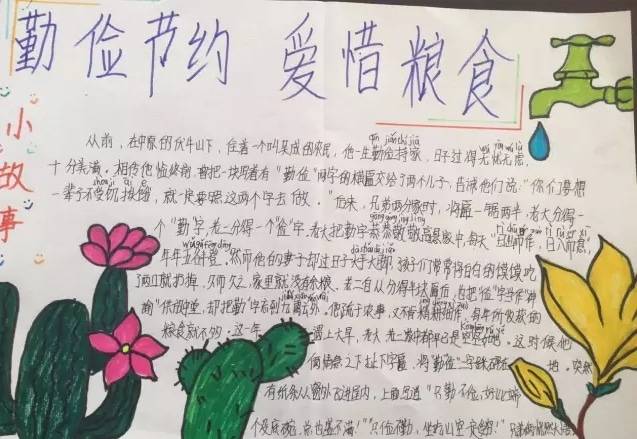 勤俭节约 爱惜粮食
小故事
从前，在中原的伏牛山下，住着一个叫吴成的农民，他一生勤俭持家，日子过得无忧无虑，
十分美满。相传他临终前，曾把一块写着有"勤俭"两字的横匾交给了两个儿子，告诫他们说："你们要想
一辈子不受饥挨饿，就一定要照这两个字去做。"后来，兄弟两分家时，将匾一锯两半，老大分得一
个"勤"字，老二分得一个"俭"字。老大把勤字恭恭敬敬高悬家中，每天"日出而作，日入而息"，
年年五谷丰登。然而他的妻子却过日子大手大脚，孩子们常常将白白的馍馍吃
了两口就扔掉，久而久之，家里就没有余粮。老二自从分得半块匾后，也把"俭"字当作"神
谕"供放中堂，却把"勤"字忘到九霄云外。他疏于农事，又不肯精耕细作，每年所收获的
粮食就不够。这一年 遇上大旱，老大老二家中都早已是空空如也。这时候他
俩情急之下扯下字匾，将"勤俭"二字踩碎在 地。突然
有纸条从窗外飞进屋内，上面写道："只勤不俭，好比端
个没底碗，总也盛不满！""只俭不勤，坐吃山空，定